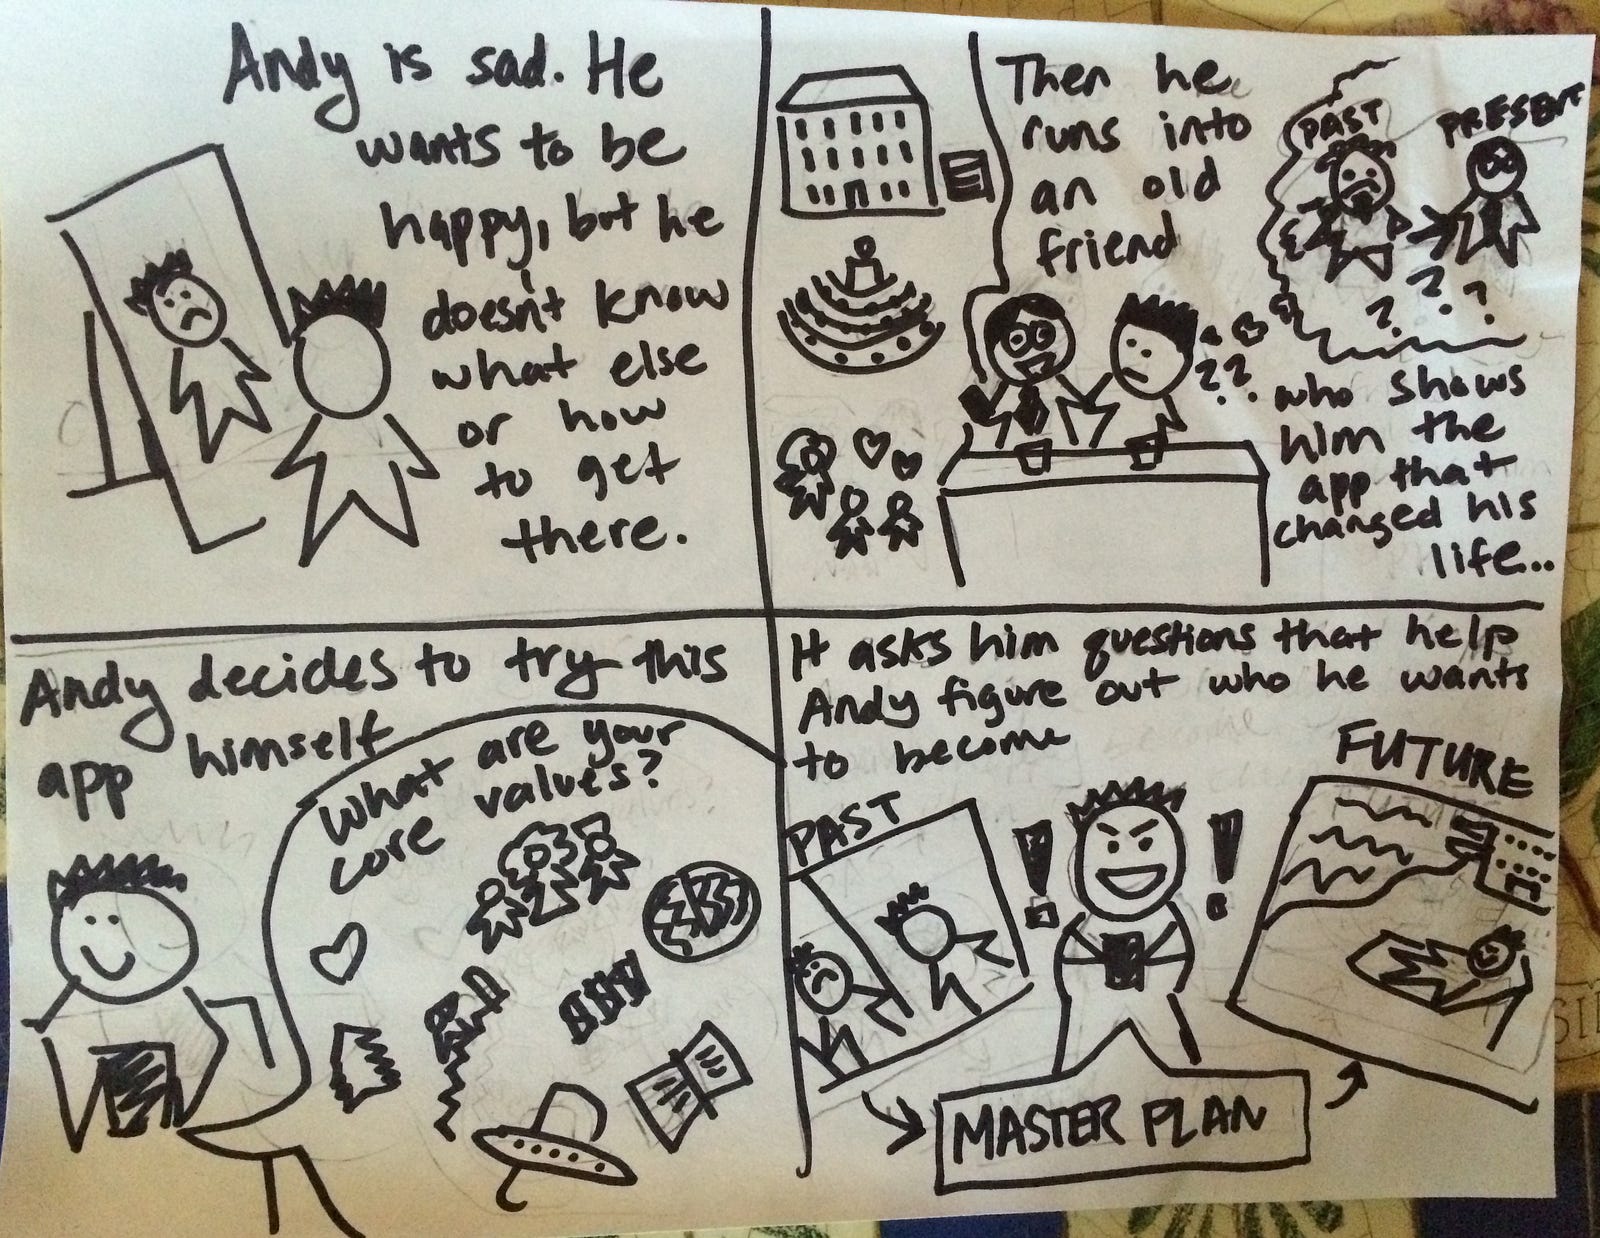 Andy is sad. He
wants to be
happy, but he
doesn't know
what else
or how
to get
there.
Then he
runs into
an old
friend
PAST
PRESENT
? ? ?
??
who shows
him the
app that
changed his
life...
Andy decides to try this
app himself
What are your
core values?
It asks him questions that help
Andy figure out who he wants
to become
PAST
! !
FUTURE
MASTER PLAN